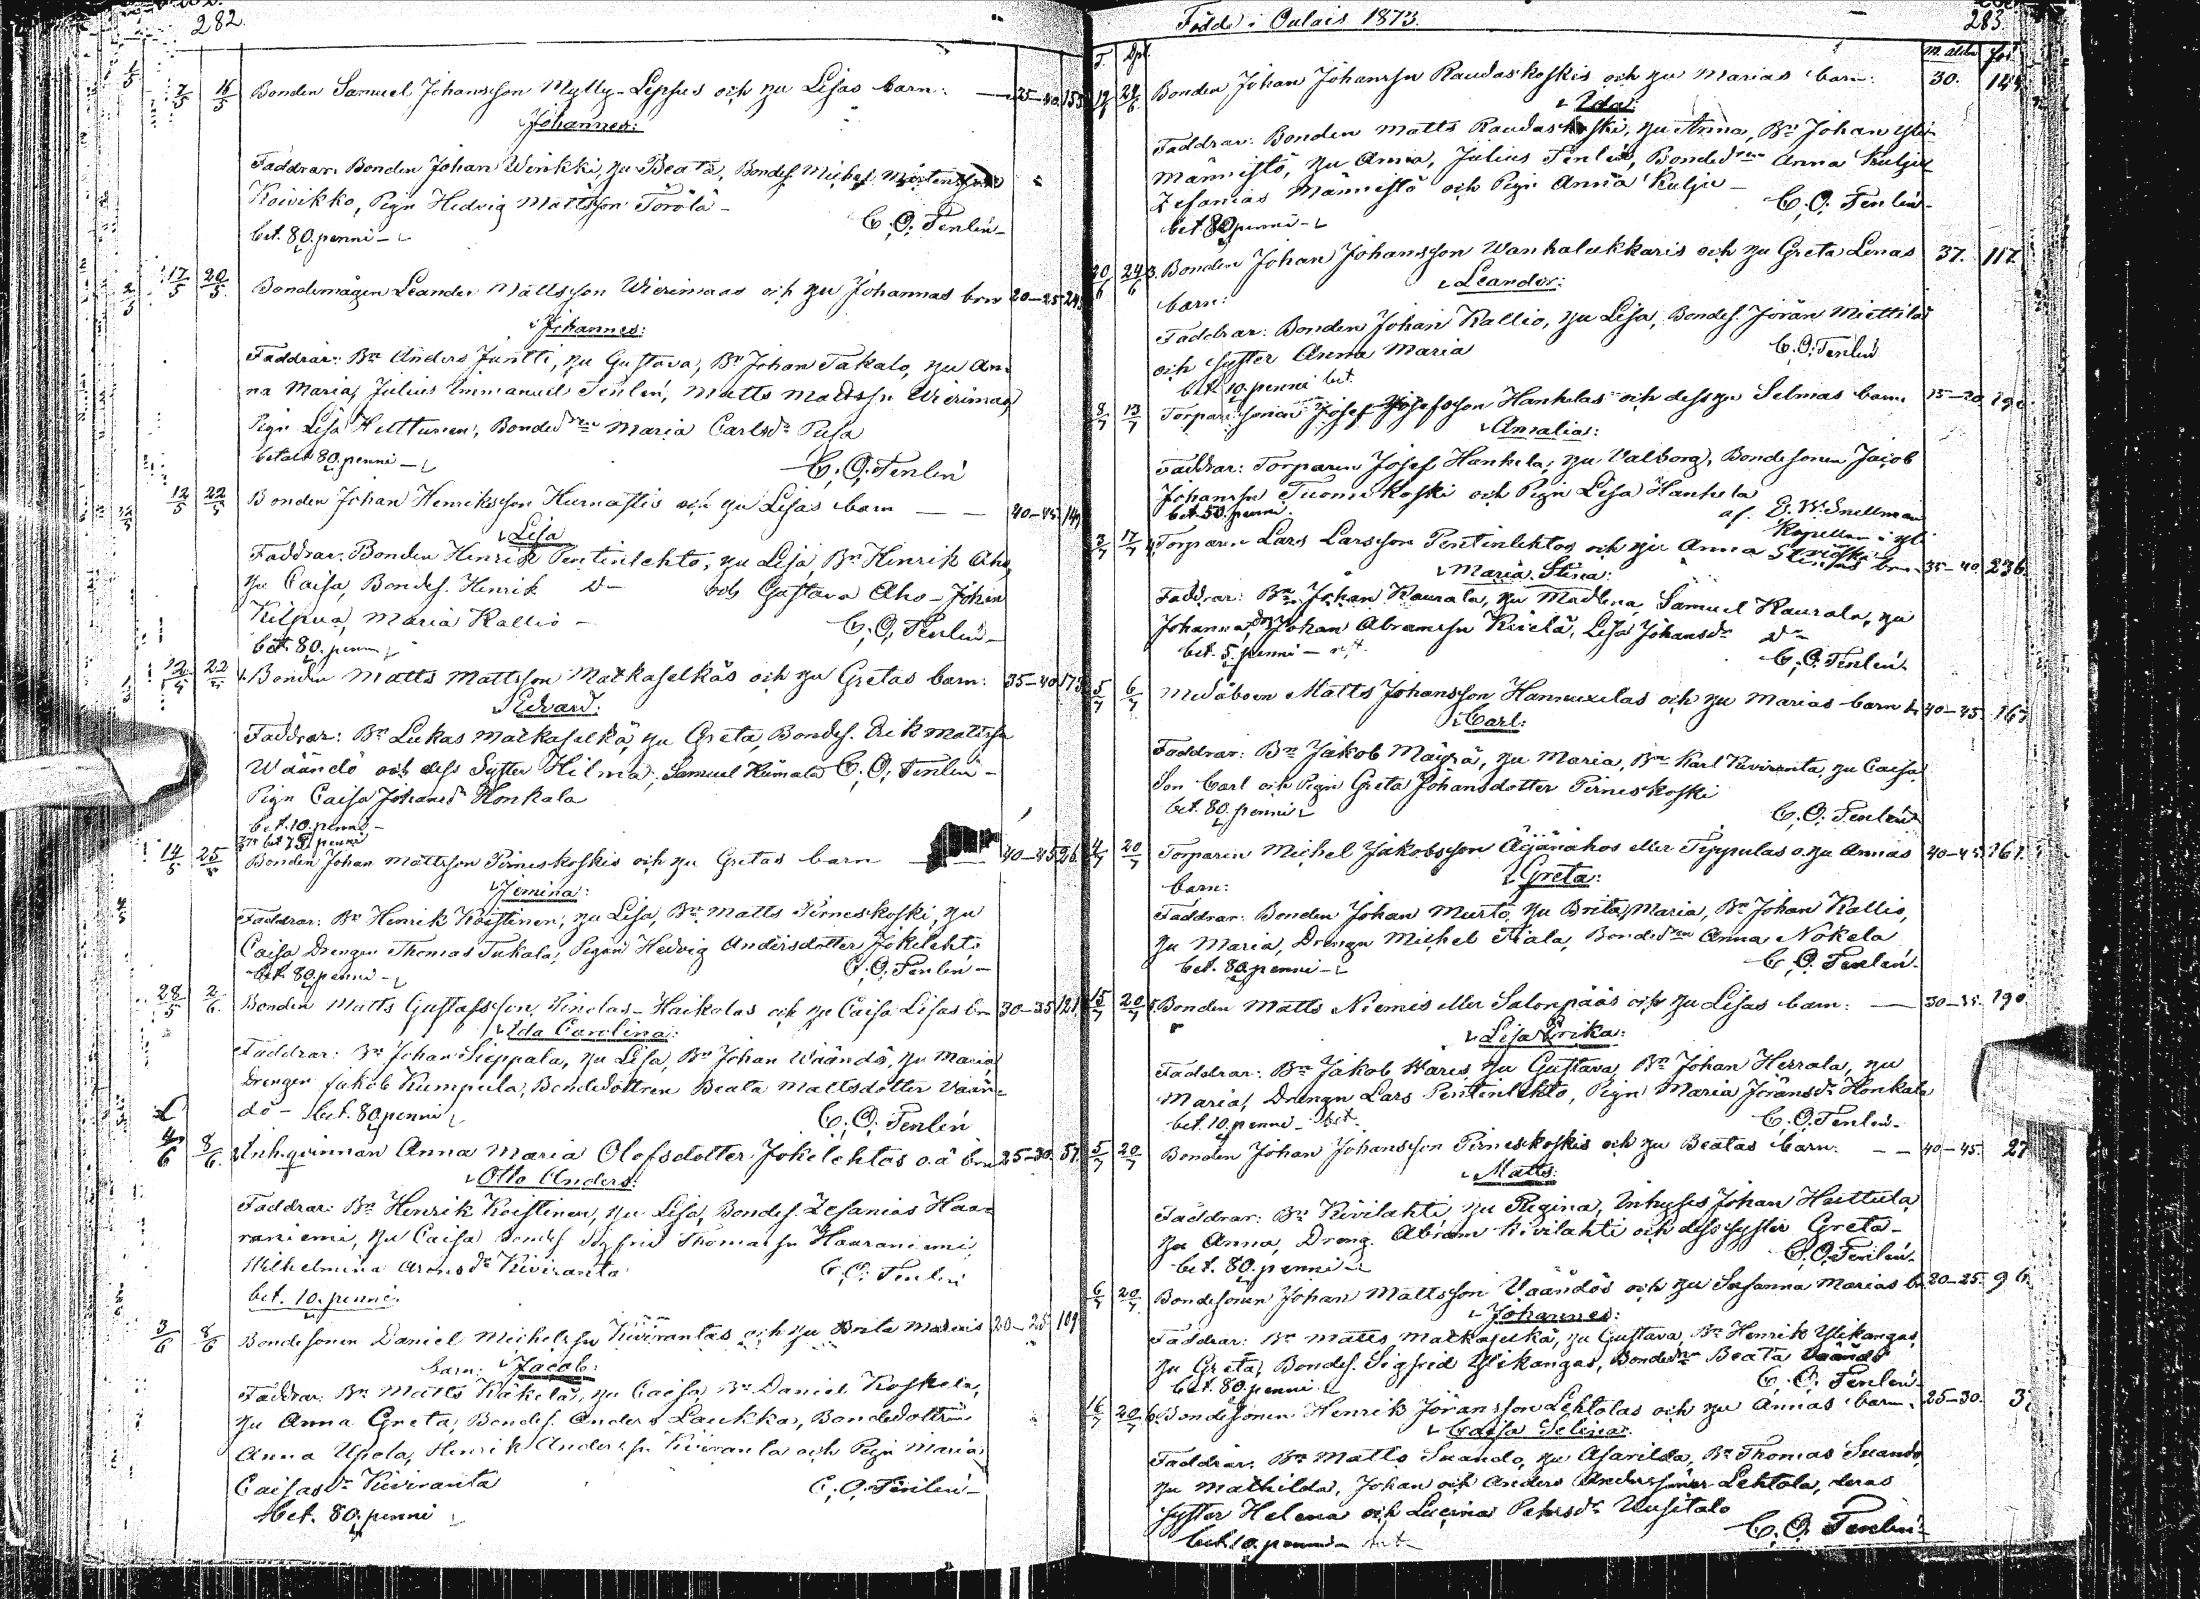 282.
7/5 18/5 Bonden Samuel Johansson Mylly-Leppus och hu Lisas barn: 25-30 153
Johannes:
Faddrar: Bonden Johan Winkki, hu Beata, Bondes. Michel Mårtensson
Koivikko, Pign Hedvig Mattsson Törölä -
bet. 80. penni - C. O. Fenlén -
17/5 20/5 Bondemågen Leander Mattsson Wierimaas och hu Johannas brn 20-25 24
Johannes:
Faddrar: Bn Anders Jantti, hu Gustava, Bn Johan Takalo, hu An-
na Maria, Julius Immanuel Fenlén, Matts Mattssn Wierimaa
Pign Lisa Hutturen, Bonded:n Maria Carlsdr Pusa
betalt 80. penni - C. O. Fenlén
12/5 22/5 Bonden Johan Henriksson Hurnastis och hu Lisas barn 40-45 149
Lisa
Faddrar: Bonden Henrik Pentinlehto, hu Lisa, Bn Henrik Aho
hu Caisa, Bondes. Henrik D- och Gustava Aho - Johan
Kilpua, Maria Kallio - C. O. Fenlén -
bet. 80. penni
12/5 22/5 Bonden Matts Mattsson Matkaselkäs och hu Gretas barn: 35-40 173
Edvard:
Faddrar: Bn Lukas Matkaselkä, hu Greta, Bondes. Erik Mattssn
Wäändö och dess Syster Hilma, Samuel C. O. Fenlén -
Pign Caisa Johansdr Honkala
bet. 10. penni -
14/5 25/5 Bonden Johan Mattsson Pirneskoskis och hu Gretas barn 40-45 26
Jemina:
Faddrar: Bn Henrik Koistinen, hu Lisa, Bn Matts Pirneskoski, hu
Caisa Drengen Thomas Takala, Pigan Hedvig Andersdotter Jokelehto
bet. 80 penni - C. O. Fenlén -
28/5 2/6 Bonden Matts Gustafsson Pinolas-Haikolas och hu Caisa Lisas bn 30-35 121
Ida Carolina:
Faddrar: Bn Johan Sieppala, hu Lisa, Bn Johan Wäändö, hu Maria
Drengen Jakob Kumpula, Bondedottren Beata Mattsdotter Vään-
dö - bet. 80 penni C. O. Fenlén
4/6 8/6 Inh.qvinnan Anna Maria Olofsdotter Jokelehtos o.ä brn 25-30 57
Otto Anders:
Faddrar: Bn Henrik Koistinen, hu Lisa, Bondes. Zefanias Haa-
raniemi, hu Caisa Bondes Sigfrid Thomassn Haaraniemi
Wilhelmina Aronsdr Kiviranta C. O. Fenlén
bet. 10. penni.
3/6 8/6 Bondesonen Daniel Michelssn Kivirantas och hu Brita Marias 20-25 109
barn: Jacob:
Faddrar: Bn Matts Käkelä, hu Caisa, Bn Daniel Koskela,
hu Anna Greta, Bondes. Anders Laukka, Bondedottren
Anna Upola, Henrik Anderssn Kiviranta och Pign Maria
Caisasdr Kiviranta C. O. Fenlén -
bet. 80. penni
Födde i Oulais 1873. 283
F. Dpt. M. ålder
12/6 24/6 Bonden Johan Johanssn Raudaskoskis och hu Marias barn: 30. 144
Ida:
Faddrar: Bonden Matts Raudaskoski, hu Anna, Bn Johan Yli-
männistö, hu Anna, Julius Fenlén, Bonded:n Anna Kulju
Zefanias Männistö och Pign Anna Kulju - C. O. Fenlén -
bet 80 penni -
20/6 24/6 Bonden Johan Johansson Wanhalukkaris och hu Greta Lenas 37. 117
barn: Leander:
Faddrar: Bonden Johan Kallio, hu Lisa, Bondes. Jöran Miettilä
och Syster Anna Maria C. O. Fenlén
bet. 10. penni bet.
8/7 13/7 Torpari sonen Josef Josefsson Hankelas och dess hu Selmas barn 15-20
Amalia:
Faddrar: Torparen Josef Hankela, hu Valborg, Bondesonen Jacob
Johanssn Tuomikoski och Pign Lisa Hankela
bet. 50. penni. af. E. W. Snellman
Kapellan i
17/7 Torparen Lars Larsson Pentinlehtos och hu Anna Stinas brn 35-40 236
Maria Stina:
Faddrar: Bn Johan Kaurala, hu Madlena, Samuel Kaurala, hu
Johanna, Johan Abramssn Kivelä, Lisa Johansdr D-
bet. 5. penni - C. O. Fenlén
5/7 6/7 Medåboen Matts Johansson Hannuxelas och hu Marias barn 40-45. 167
Carl:
Faddrar: Bn Jakob Mäyrä, hu Maria, Bn Karl Kiviranta, hu Caisa
Son Carl och Pign Greta Johansdotter Pirneskoski
bet. 80. penni C. O. Fenlén
4/7 20/7 Torparen Michel Jakobsson Äijänahos eller Tippulas o. hu Annas 40-45. 161
barn: Greta:
Faddrar: Bonden Johan Murto, hu Brita Maria, Bn Johan Kallio,
hu Maria, Drengn Michel Tiala, Bonded:n Anna Nokela
bet. 80. penni - C. O. Fenlén -
15/7 20/7 Bonden Matts Niemis eller Salonpääs och hu Lisas barn: 30-35. 190
Lisa Erika:
Faddrar: Bn Jakob Hares, hu Gustava, Bn Johan Herrala, hu
Maria, Drengn Lars Pentinlehto, Pign Maria Jöransdr Honkala
bet. 10. penni - bet. C. O. Fenlén -
5/7 20/7 Bonden Johan Johansson Pirneskoskis och hu Beatas barn: 40-45. 27
Matts:
Faddrar: Bn Kivilahti, hu Regina, Inhyses Johan Huttula,
hu Anna, Dreng. Abram Kivilahti och dess syster Greta -
bet. 80. penni C. O. Fenlén -
6/7 20/7 Bondesonen Johan Mattsson Väändös och hu Susanna Marias bn 20-25. 96
Johannes:
Faddrar: Bn Matts Matkaselkä, hu Gustava, Bn Henrik Ylikangas,
hu Greta, Bondes. Sigfrid Ylikangas, Bonded:n Beata Väändö
bet. 80. penni C. O. Fenlén -
16/7 20/7 Bondesonen Henrik Jöransson Lehtolas och hu Annas barn. 25-30. 3
Caisa Selina:
Faddrar: Bn Matts Suando, hu Asarilda, Bn Thomas Suando,
hu Mathilda, Johan och Anders Anderssöner Lehtola, deras
syster Helena och Lucina Pehrsdr Uusitalo
bet. 10. penni - bet C. O. Fenlén -